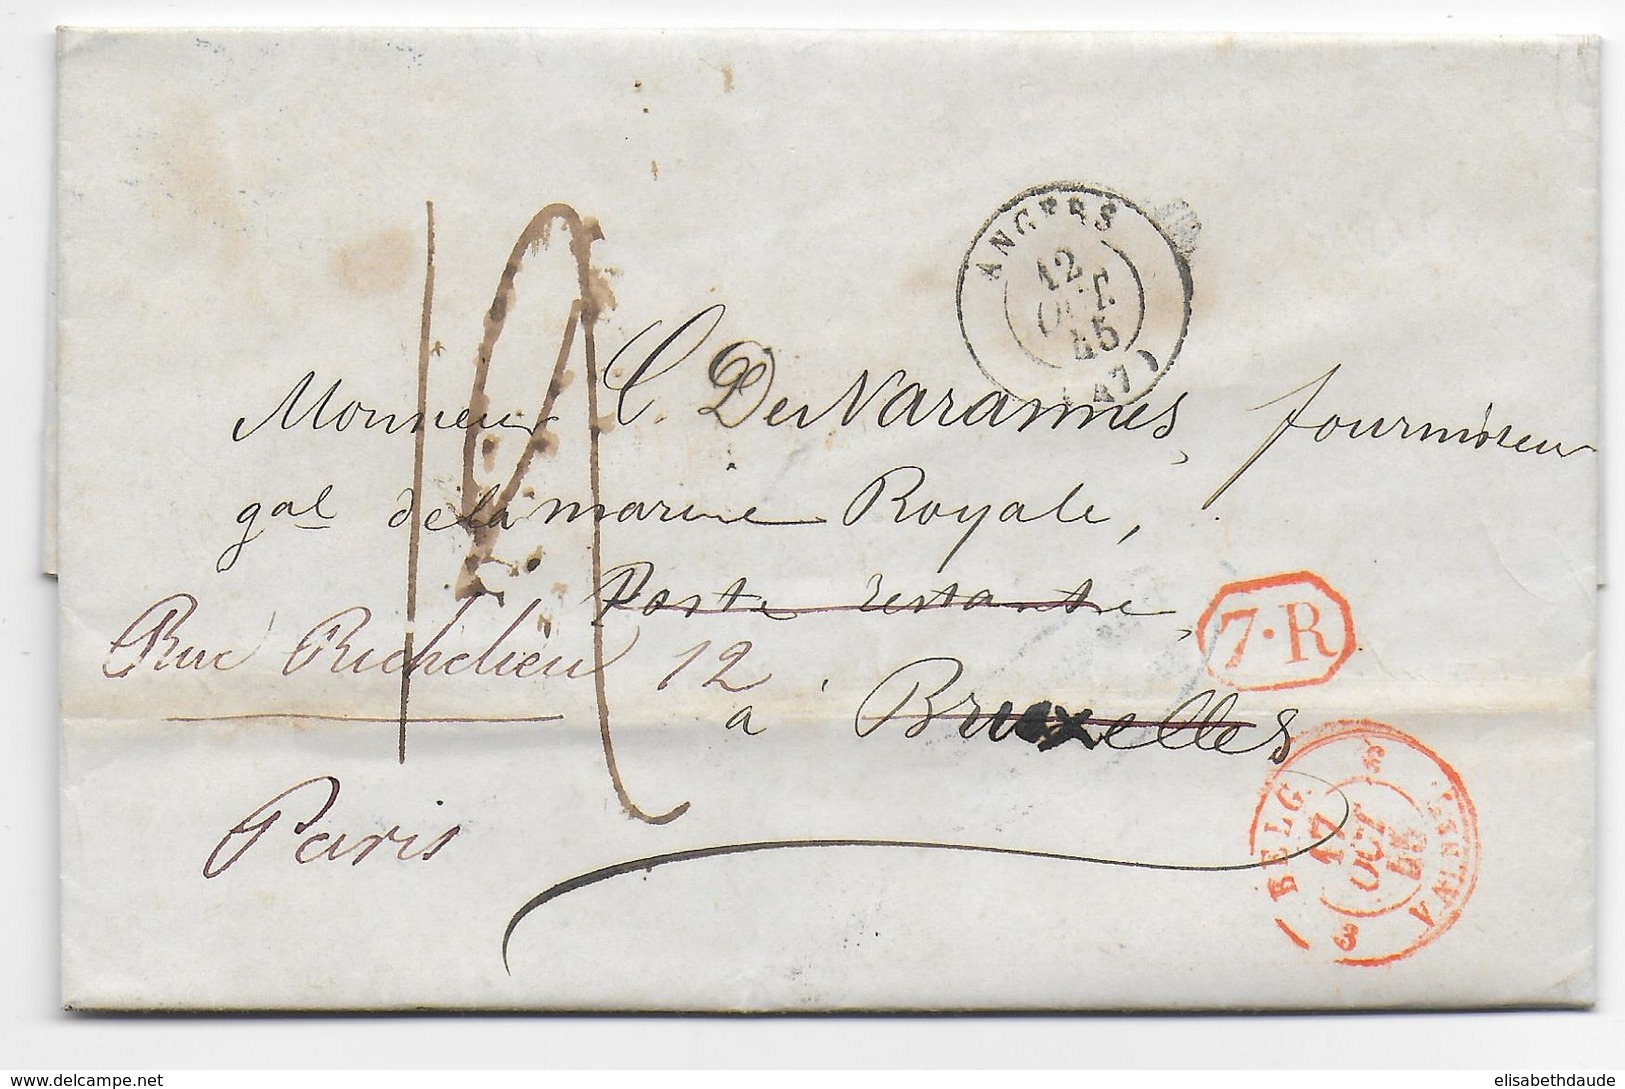 ANGERS
12
OCT.
45
(47)
Monsieur C. De Varannes, fournisseur
gal de la marine Royale,
Poste restante,
7.R
Rue Richelieu 12
à Bruxelles
Paris
BELG.
3
17
OCT
45
VALENN
3
delcampe.net
elisabethdaude